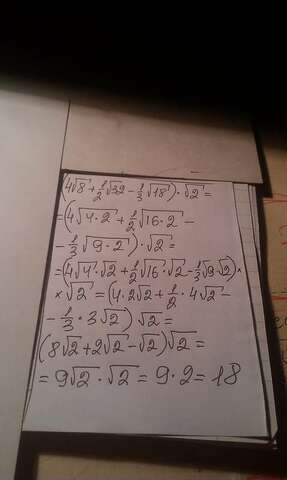 (4√8 + 1/2 √32 - 1/3 √18) · √2 =
= (4√4·2 + 1/2 √16·2 -
- 1/3 √9·2) · √2 =
= (4√4 · √2 + 1/2 √16 · √2 - 1/3 √9 · √2) ×
× √2 = (4 · 2√2 + 1/2 · 4√2 -
- 1/3 · 3√2) √2 =
(8√2 + 2√2 - √2) √2 =
= 9√2 · √2 = 9 · 2 = 18